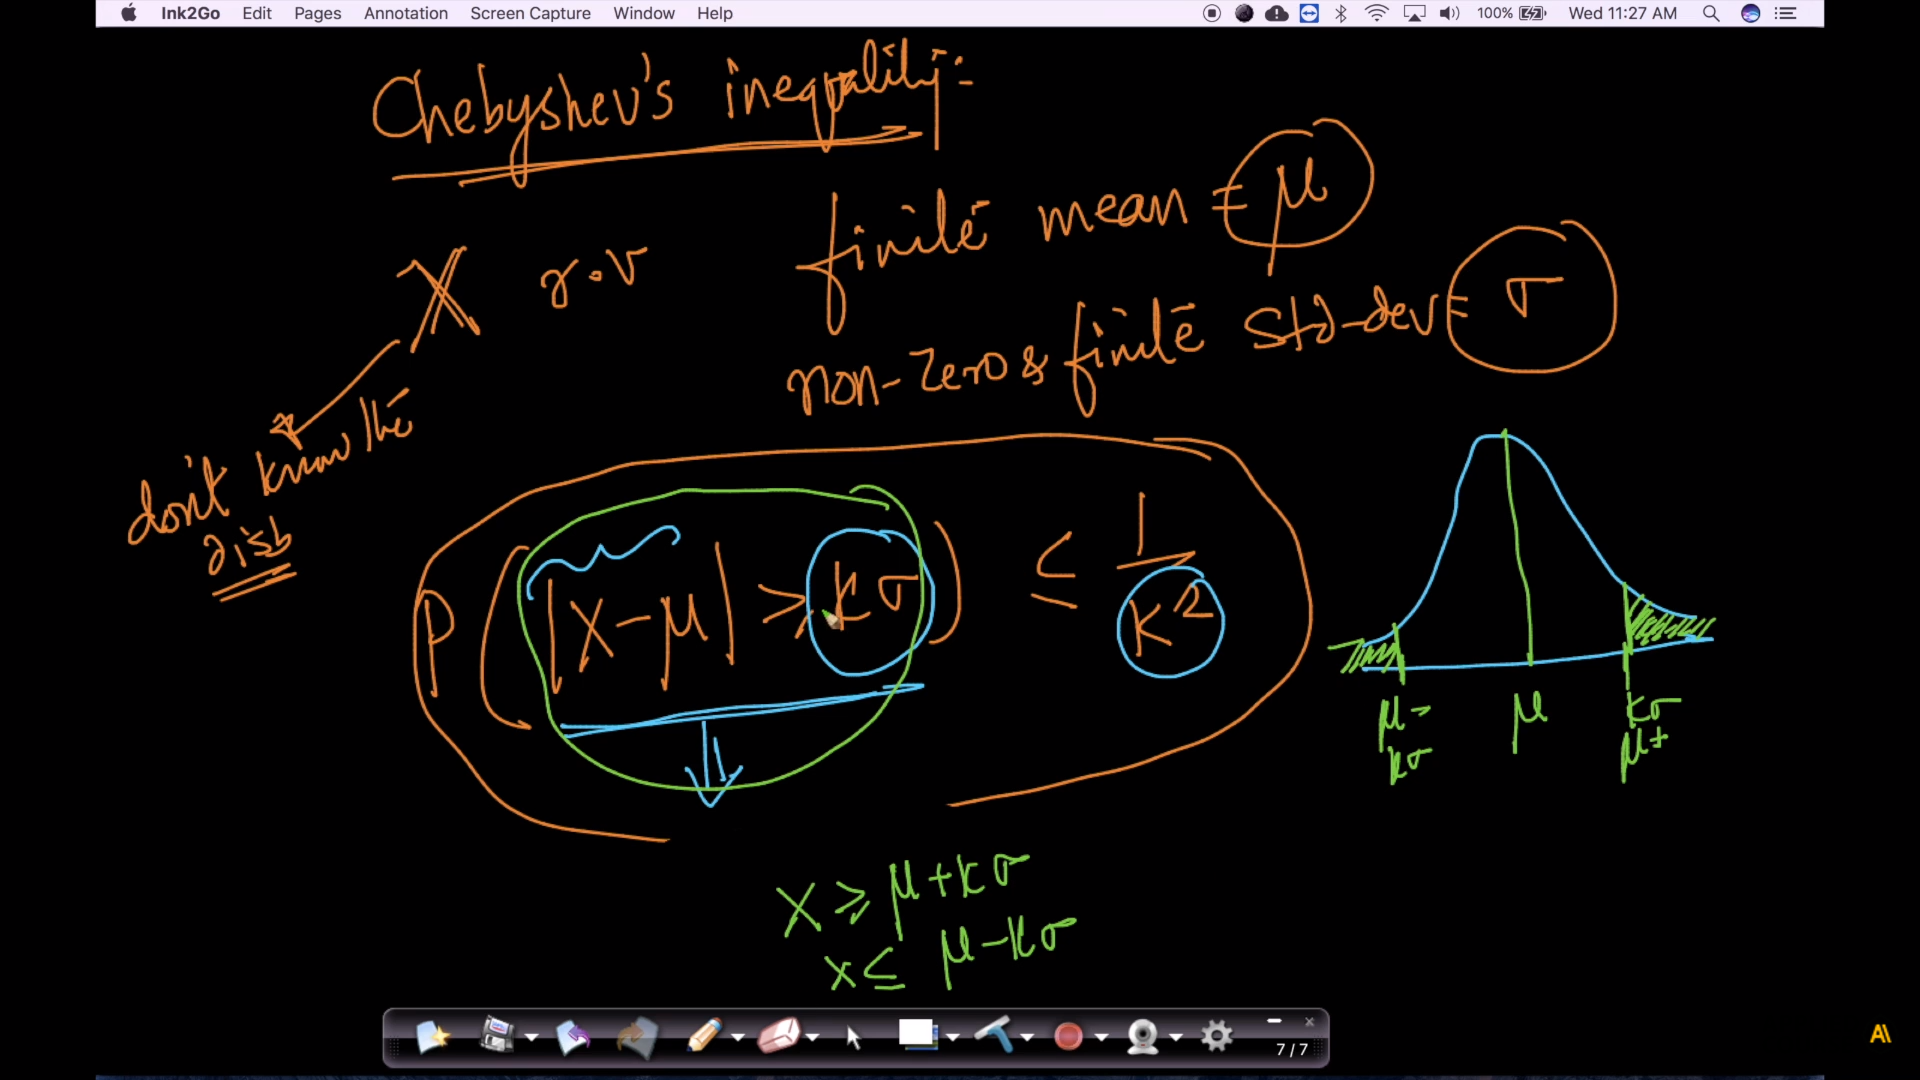 Ink2Go Edit Pages Annotation Screen Capture Window Help 100% Wed 11:27 AM
Chebyshev's inequality:-
finite mean = μ
X r.v
non-zero & finite std-dev = σ
don't know the
P(|X-μ| ≥ kσ) ≤ 1/k²
μ-
kσ
μ
kσ
μ+
X ≥ μ+kσ
x ≤ μ-kσ
7/7